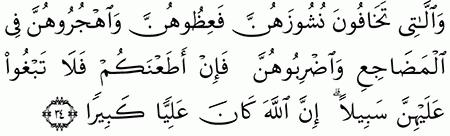 وَٱلَّٰتِى تَخَافُونَ نُشُوزَهُنَّ فَعِظُوهُنَّ وَٱهْجُرُوهُنَّ فِى
ٱلْمَضَاجِعِ وَٱضْرِبُوهُنَّ فَإِنْ أَطَعْنَكُمْ فَلَا تَبْغُوا۟
عَلَيْهِنَّ سَبِيلًا ۗ إِنَّ ٱللَّهَ كَانَ عَلِيًّا كَبِيرًا ﴿٣٤﴾